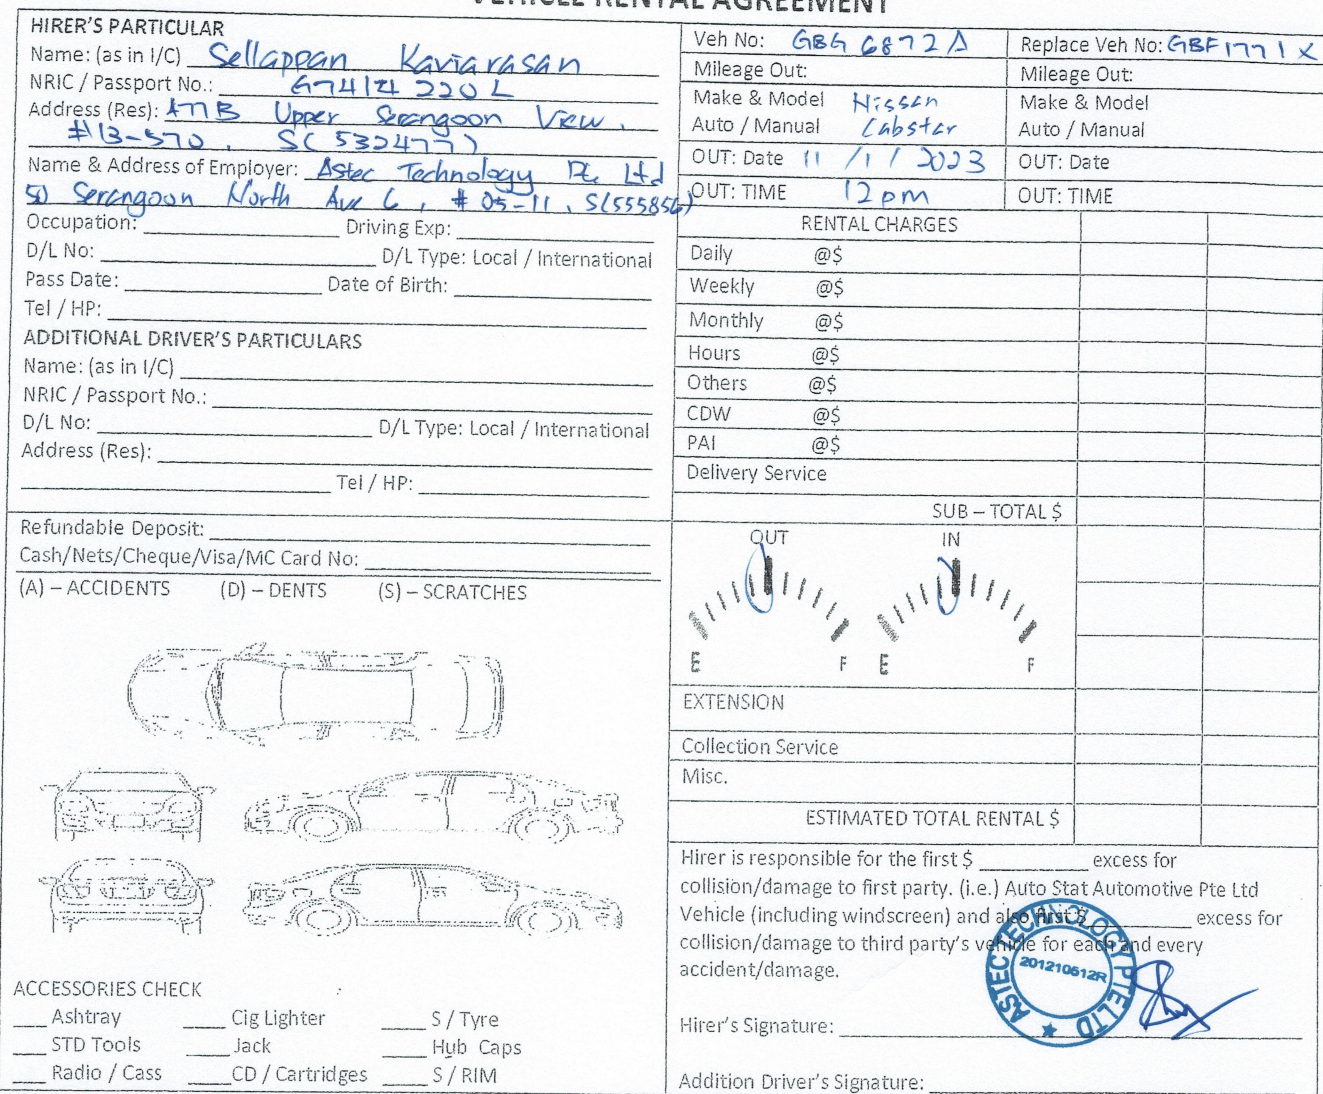 VEHICLE RENTAL AGREEMENT
HIRER'S PARTICULAR
Name: (as in I/C) Sellappan Kaviarasan
NRIC / Passport No.: G7414220L
Address (Res): 477B Upper Serangoon View,
#13-570, S(532477)
Name & Address of Employer: Astec Technology Pte Ltd
50 Serangoon North Ave 6, #05-11, S(555856)
Occupation: Driving Exp:
D/L No: D/L Type: Local / International
Pass Date: Date of Birth:
Tel / HP:
ADDITIONAL DRIVER'S PARTICULARS
Name: (as in I/C)
NRIC / Passport No.:
D/L No: D/L Type: Local / International
Address (Res):
Tel / HP:
Refundable Deposit:
Cash/Nets/Cheque/Visa/MC Card No:
(A) – ACCIDENTS (D) – DENTS (S) – SCRATCHES
ACCESSORIES CHECK
Ashtray Cig Lighter S / Tyre
STD Tools Jack Hub Caps
Radio / Cass CD / Cartridges S / RIM
Veh No: GBG 6872A Replace Veh No: GBF1771X
Mileage Out: Mileage Out:
Make & Model Nissan Make & Model
Auto / Manual Cabstar Auto / Manual
OUT: Date 11 /1 / 2023 OUT: Date
OUT: TIME 12pm OUT: TIME
RENTAL CHARGES
Daily @$
Weekly @$
Monthly @$
Hours @$
Others @$
CDW @$
PAI @$
Delivery Service
SUB – TOTAL $
OUT IN
E F E F
EXTENSION
Collection Service
Misc.
ESTIMATED TOTAL RENTAL $
Hirer is responsible for the first $ excess for
collision/damage to first party. (i.e.) Auto Stat Automotive Pte Ltd
Vehicle (including windscreen) and also first $ excess for
collision/damage to third party's vehicle for each and every
accident/damage.
ASTEC TECHNOLOGY PTE LTD
201210512R
Hirer's Signature:
Addition Driver's Signature: